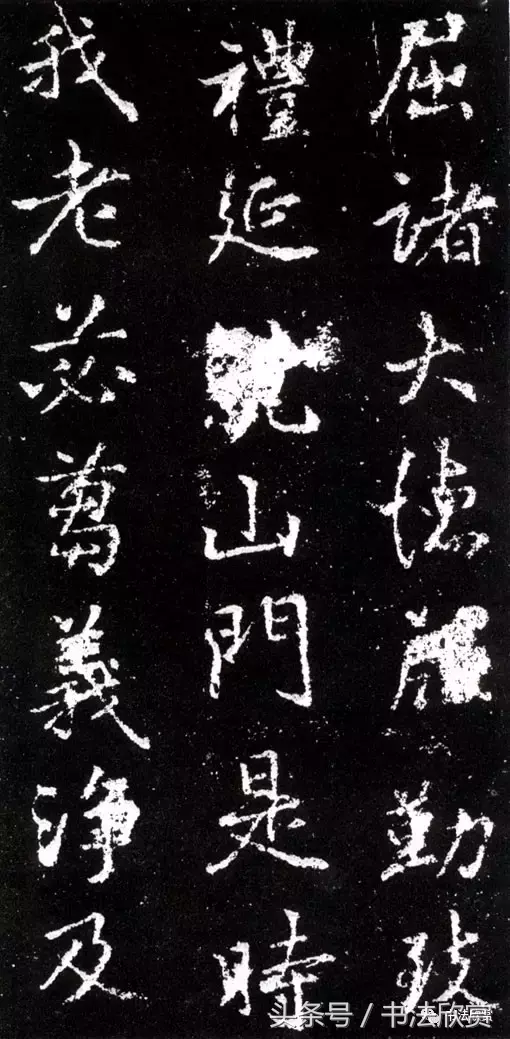 屈諸大德勤致
禮延山門是時
我老苾蒭義淨及
头条号 / 书法欣赏